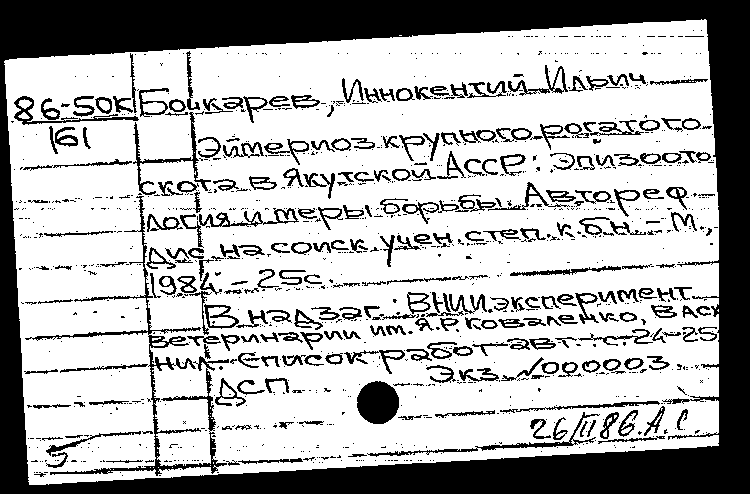 86-50к Бочкарев, Иннокентий Ильич
161
Эймериоз крупного рогатого
скота в Якутской АССР: Эпизоото
логия и меры борьбы. Автореф.
дис. на соиск. учен. степ. к.б.н. - М.,
1984. - 25с.
В надзаг.: ВНИИ эксперимент.
ветеринарии им. Я.Р. Коваленко, ВАСХ
НИЛ. Список работ авт.: с. 24-25
ДСП Экз. №000003
26/II 86. А.С.
5